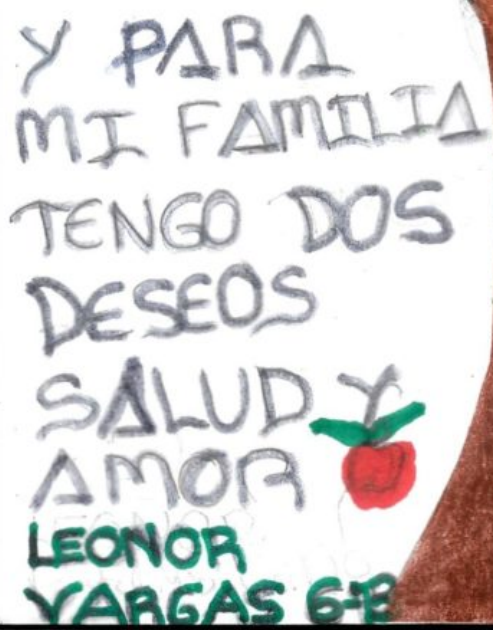 Y PARA
MI FAMILIA
TENGO DOS
DESEOS
SALUD Y
AMOR
LEONOR
VARGAS 6-B